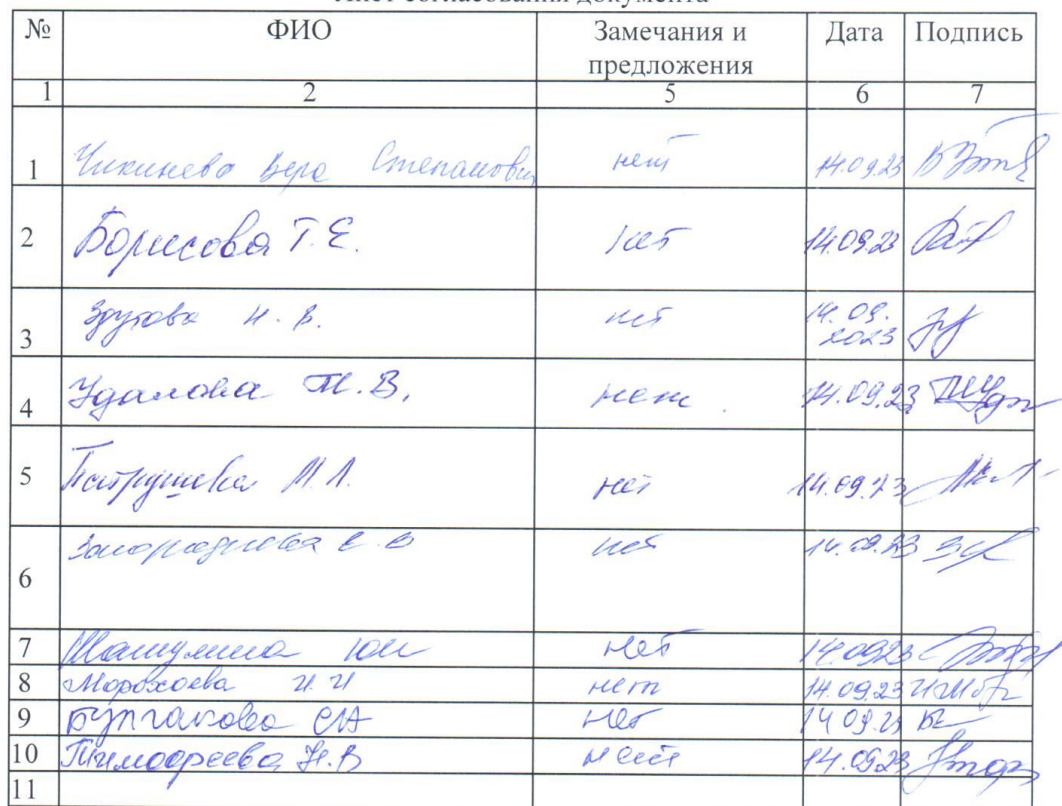 Лист согласования документа
№ ФИО Замечания и предложения Дата Подпись
1 2 5 6 7
1 Чикинева Вера Степановн нет 14.09.23
2 Борисова Т.Е. нет 14.09.23
3 Н.В. нет 14.09.2023
4 Удалова Т.В. нет 14.09.23
5 Патрушева М.Л. нет 14.09.23
6 Загороднева Е.В нет 14.09.23
7 ЮИ нет 14.09.23
8 Морохоева И.И нет 14.09.23
9 Булгакова СА нет 14.09.23
10 Тимофеева Н.В нет 14.09.23
11